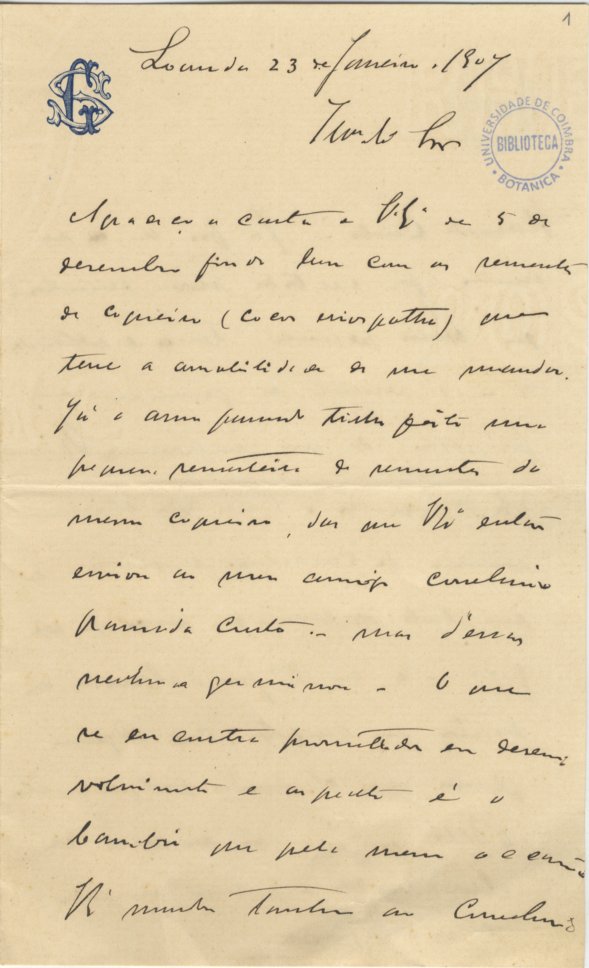 1
Loanda 23 de Janeiro. 1907
UNIVERSIDADE DE COIMBRA
BIBLIOTECA
BOTANICA
Agradeço a carta de V. Exª de 5 de
dezembro findo bem com as sementes
de coqueiro (cocos eriospatha) que
teve a amabilidade de me mandar.
Já o anno passado tinha feito uma
pequena sementeira de sementes do
mesmo coqueiro, das que Vª então
enviou ao meu amigo conselheiro
Ramada Curto .- mas d'essas
nenhuma germinou - O que
se encontra promettedor em desen-
volvimento e aspecto é o
bambú que pela mesma occasião
Vª mandou tambem ao Conselheiro